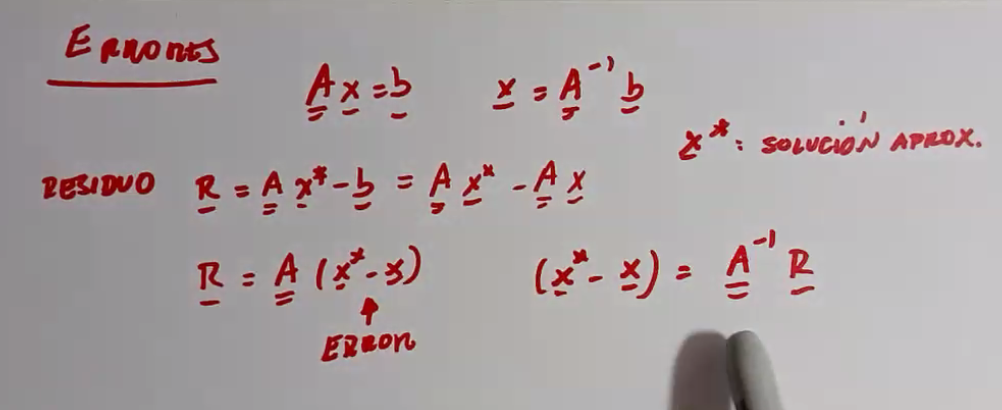 ERRORES
A x = b    x = A⁻¹ b
x* : SOLUCIÓN APROX.
RESIDUO R = A x* - b = A x* - A x
R = A (x* - x)    (x* - x) = A⁻¹ R
ERROR